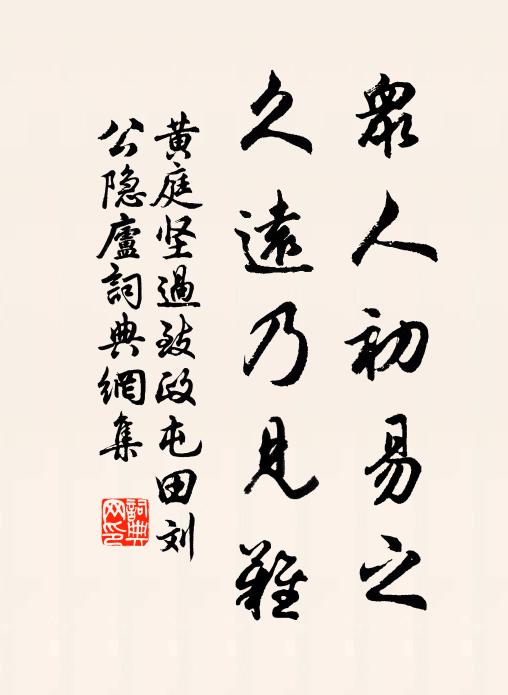 眾人初易之
久遠乃見難
黄庭坚過致政屯田刘
公隐廬詞典網集
詞典网印